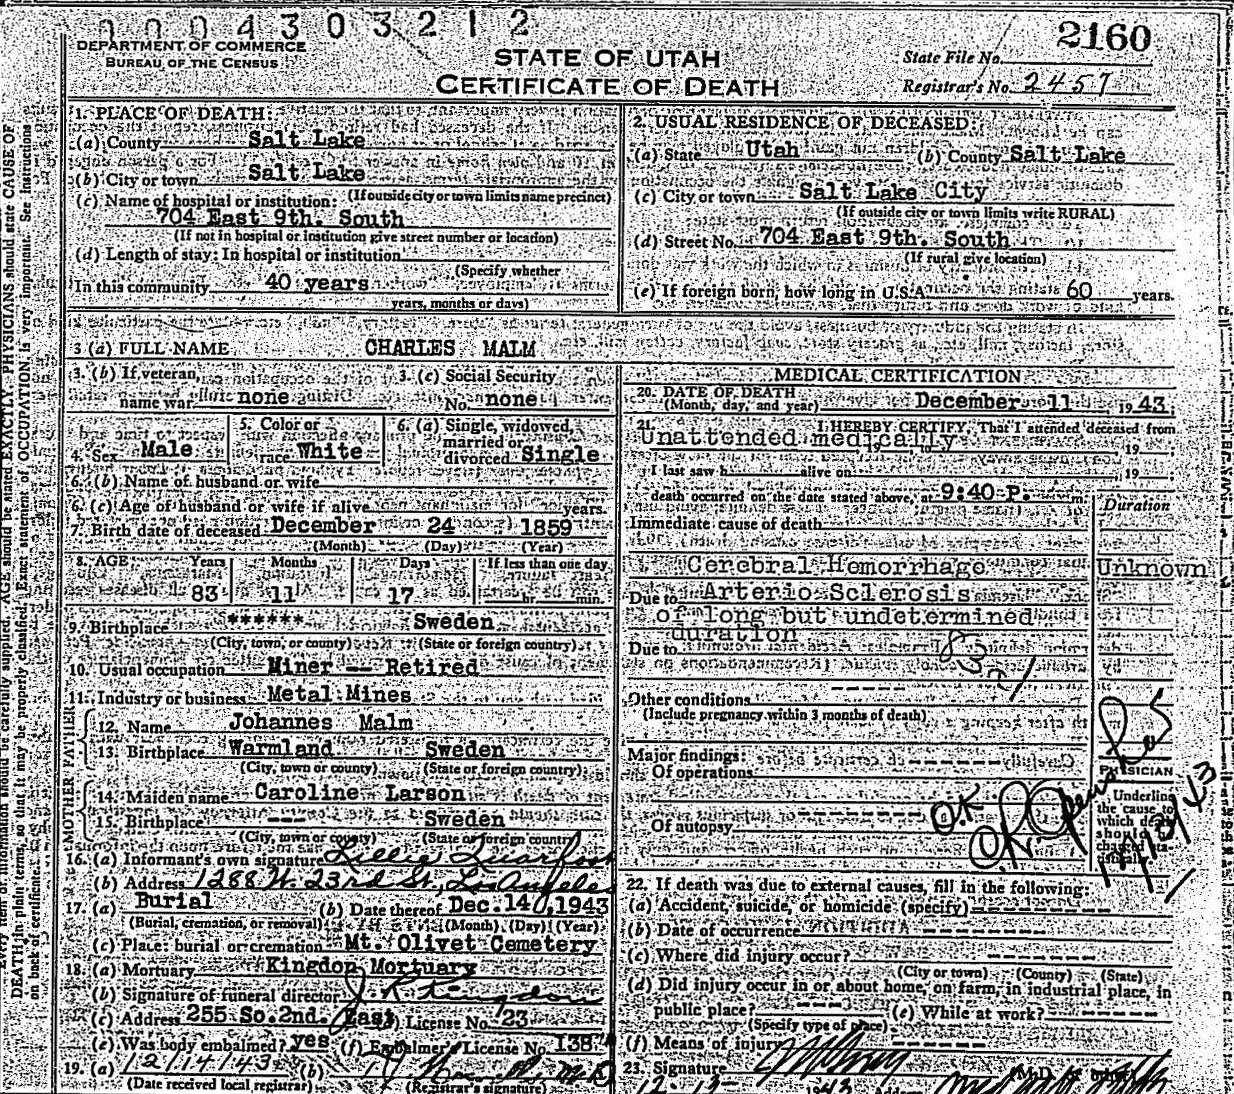 0004303212
DEPARTMENT OF COMMERCE
BUREAU OF THE CENSUS
STATE OF UTAH
CERTIFICATE OF DEATH
2160
State File No.
Registrar's No. 2457
1. PLACE OF DEATH:
(a) County Salt Lake
(b) City or town Salt Lake
(If outside city or town limits name precinct)
(c) Name of hospital or institution:
704 East 9th. South
(If not in hospital or institution give street number or location)
(d) Length of stay: In hospital or institution
(Specify whether
In this community 40 years
years, months or days)
2. USUAL RESIDENCE OF DECEASED:
(a) State Utah (b) County Salt Lake
(c) City or town Salt Lake City
(If outside city or town limits write RURAL)
(d) Street No. 704 East 9th. South
(If rural give location)
(e) If foreign born, how long in U.S.A. 60 years.
3 (a) FULL NAME CHARLES MALM
3. (b) If veteran, name war none
3. (c) Social Security No. none
4. Sex Male
5. Color or race White
6. (a) Single, widowed, married or divorced Single
6. (b) Name of husband or wife
6. (c) Age of husband or wife if alive years.
7. Birth date of deceased December 24 1859
(Month) (Day) (Year)
8. AGE Years Months Days If less than one day
83 11 17 hr. min.
9. Birthplace ****** Sweden
(City, town, or county) (State or foreign country)
10. Usual occupation Miner -- Retired
11. Industry or business Metal Mines
FATHER
12. Name Johannes Malm
13. Birthplace Warmland Sweden
(City, town or county) (State or foreign country)
MOTHER
14. Maiden name Caroline Larson
15. Birthplace --- Sweden
(City, town or county) (State or foreign country)
16. (a) Informant's own signature Lillie
(b) Address 1288 W. 23rd St, Los Angeles
17. (a) Burial (b) Date thereof Dec. 14, 1943
(Burial, cremation, or removal) (Month) (Day) (Year)
(c) Place: burial or cremation Mt. Olivet Cemetery
18. (a) Mortuary Kingdon Mortuary
(b) Signature of funeral director J R Kingdon
(c) Address 255 So. 2nd. East License No. 23
(e) Was body embalmed? yes (f) Embalmer's License No. 138
19. (a) 12/14/43 (b) M D
(Date received local registrar) (Registrar's signature)
MEDICAL CERTIFICATION
20. DATE OF DEATH
(Month, day, and year) December 11 1943.
21. I HEREBY CERTIFY, That I attended deceased from
Unattended medically 19 , to 19
I last saw h alive on 19
death occurred on the date stated above, at 9:40 P. m.
Duration
Immediate cause of death
Cerebral Hemorrhage Unknown
Due to Arterio Sclerosis
of long but undetermined
duration
Due to
Other conditions
(Include pregnancy within 3 months of death)
Major findings:
Of operations
Of autopsy
O.K
PHYSICIAN
Underline the cause to which death should be charged statistically.
22. If death was due to external causes, fill in the following:
(a) Accident, suicide, or homicide (specify)
(b) Date of occurrence
(c) Where did injury occur?
(City or town) (County) (State)
(d) Did injury occur in or about home, on farm, in industrial place, in
public place? --- (e) While at work?
(Specify type of place)
(f) Means of injury
23. Signature